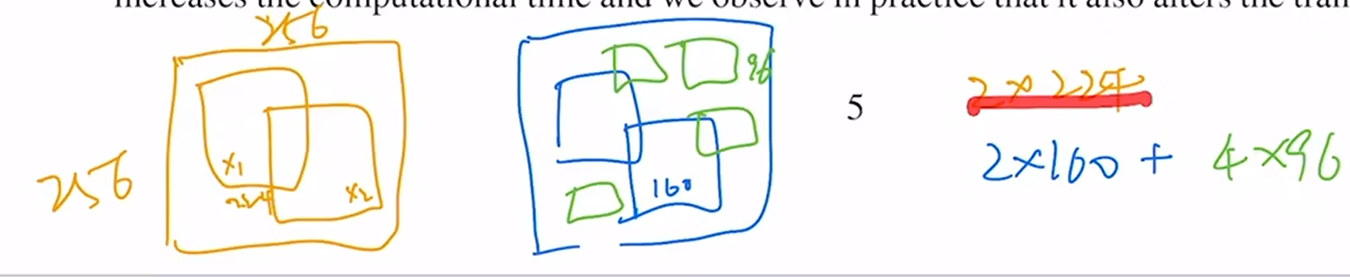 increases the computational time and we observe in practice that it also alters the tran
256
256
x1
224
x2
96
160
5
2×224
2×160 + 4×96